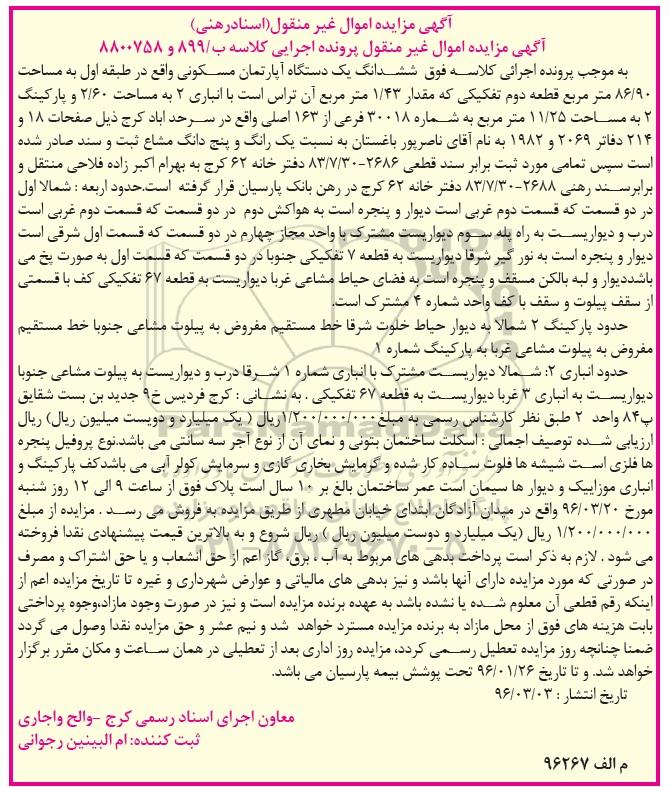 آگهی مزایده اموال غیر منقول(اسنادرهنی)
آگهی مزایده اموال غیر منقول پرونده اجرایی کلاسه ب/۸۹۹ و ۸۸۰۰۷۵۸
به موجب پرونده اجرائی کلاسه فوق ششدانگ یک دستگاه آپارتمان مسکونی واقع در طبقه اول به مساحت
۸۶/۹۰ متر مربع قطعه دوم تفکیکی که مقدار ۱/۴۳ متر مربع آن تراس است با انباری ۲ به مساحت ۲/۶۰ و پارکینگ
۲ به مساحت ۱۱/۲۵ متر مربع به شماره ۳۰۰۱۸ فرعی از ۱۶۳ اصلی واقع در سرحد اباد کرج ذیل صفحات ۱۸ و
۲۱۴ دفاتر ۲۰۶۹ و ۱۹۸۲ به نام آقای ناصرپور باغستان به نسبت یک رانگ و پنج دانگ مشاع ثبت و سند صادر شده
است سپس تمامی مورد ثبت برابر سند قطعی ۲۶۸۶-۸۳/۷/۳۰ دفتر خانه ۶۲ کرج به بهرام اکبر زاده فلاحی منتقل و
برابرسند رهنی ۲۶۸۸-۸۳/۷/۳۰ دفتر خانه ۶۲ کرج در رهن بانک پارسیان قرار گرفته است.حدود اربعه : شمالا اول
در دو قسمت که قسمت دوم غربی است دیوار و پنجره است به هواکش دوم در دو قسمت که قسمت دوم غربی است
درب و دیواریست به راه پله سوم دیواریست مشترک با واحد مجاز چهارم در دو قسمت که قسمت اول شرقی است
دیوار و پنجره است به نور گیر شرقا دیواریست به قطعه ۷ تفکیکی جنوبا در دو قسمت که قسمت اول به صورت پخ می
باشددیوار و لبه بالکن مسقف و پنجره است به فضای حیاط مشاعی غربا دیواریست به قطعه ۶۷ تفکیکی کف با قسمتی
از سقف پیلوت و سقف با کف واحد شماره ۴ مشترک است.
حدود پارکینگ ۲ شمالا به دیوار حیاط خلوت شرقا خط مستقیم مفروض به پیلوت مشاعی جنوبا خط مستقیم
مفروض به پیلوت مشاعی غربا به پارکینگ شماره ۱
حدود انباری ۲: شمالا دیواریست مشترک با انباری شماره ۱ شرقا درب و دیواریست به پیلوت مشاعی جنوبا
دیواریست به انباری ۳ غربا دیواریست به قطعه ۶۷ تفکیکی . به نشانی : کرج فردیس خ۹ جدید بن بست شقایق
پ۸۴ واحد ۲ طبق نظر کارشناس رسمی به مبلغ۱/۲۰۰/۰۰۰/۰۰۰ریال ( یک میلیارد و دویست میلیون ریال) ریال
ارزیابی شده توصیف اجمالی : اسکلت ساختمان بتونی و نمای آن از نوع آجر سه سانتی می باشد.نوع پروفیل پنجره
ها فلزی است شیشه ها فلوت ساده کار شده و گرمایش بخاری گازی و سرمایش کولر آبی می باشدکف پارکینگ و
انباری موزاییک و دیوار ها سیمان است عمر ساختمان بالغ بر ۱۰ سال است پلاک فوق از ساعت ۹ الی ۱۲ روز شنبه
مورخ ۹۶/۰۳/۲۰ واقع در میدان آزادگان ابتدای خیابان مطهری از طریق مزایده به فروش می رسد . مزایده از مبلغ
۱/۲۰۰/۰۰۰/۰۰۰ ریال (یک میلیارد و دوست میلیون ریال ) ریال شروع و به بالاترین قیمت پیشنهادی نقدا فروخته
می شود . لازم به ذکر است پرداخت بدهی های مربوط به آب ، برق، گاز اعم از حق انشعاب و یا حق اشتراک و مصرف
در صورتی که مورد مزایده دارای آنها باشد و نیز بدهی های مالیاتی و عوارض شهرداری و غیره تا تاریخ مزایده اعم از
اینکه رقم قطعی آن معلوم شده یا نشده باشد به عهده برنده مزایده است و نیز در صورت وجود مازاد،وجوه پرداختی
بابت هزینه های فوق از محل مازاد به برنده مزایده مسترد خواهد شد و نیم عشر و حق مزایده نقدا وصول می گردد
ضمنا چنانچه روز مزایده تعطیل رسمی کردد، مزایده روز اداری بعد از تعطیلی در همان ساعت و مکان مقرر برگزار
خواهد شد. و تا تاریخ ۹۶/۰۱/۲۶ تحت پوشش بیمه پارسیان می باشد.
تاریخ انتشار : ۹۶/۰۳/۰۳
معاون اجرای اسناد رسمی کرج -والح واجاری
ثبت کننده: ام البینین رجوانی
م الف ۹۶۲۶۷